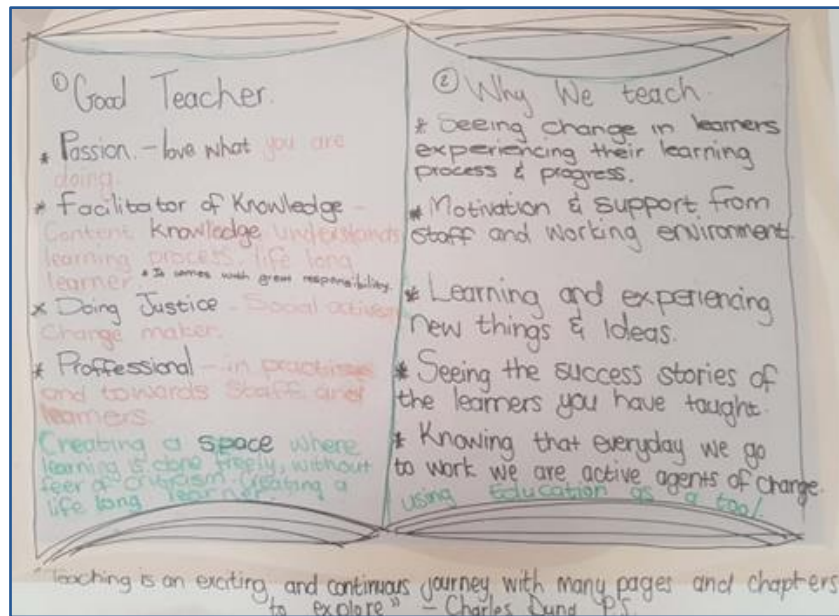 ① Good Teacher.
* Passion. – love what you are
doing.
* Facilitator of Knowledge –
Content knowledge understands
learning process, life long
learner. * It comes with great responsibility.
x Doing Justice – Social activism
Change maker.
* Proffessional – in practise
and towards staff and
learners.
Creating a space where
learning is done freely, without
feer of criticism. Creating a
life long learner.
② Why We teach
* Seeing change in learners
experiencing their learning
process & progress.
* Motivation & support from
staff and working environment.
* Learning and experiencing
new things & Ideas.
* Seeing the success stories of
the learners you have taught.
* Knowing that everyday we go
to work we are active agents of change.
using Education as a tool
"Teaching is an exciting and continuous journey with many pages and chapters
to explore" – Charles P.S.